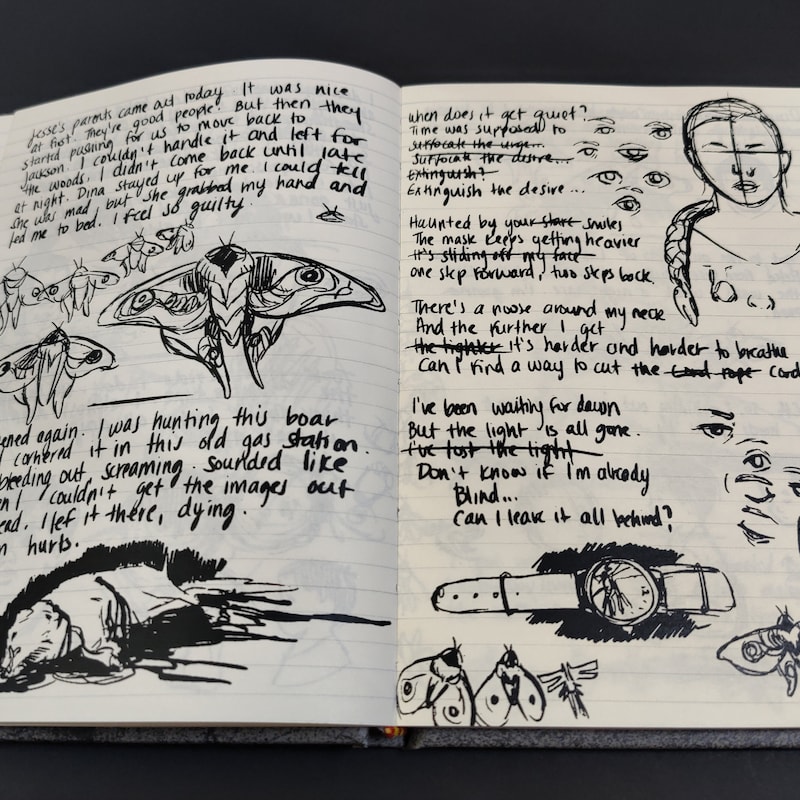 Jesse's parents came out today. It was nice
at first. They're good people. But then they
started pushing for us to move back to
Jackson. I couldn't handle it and left for
the woods. I didn't come back until late
at night. Dina stayed up for me. I could tell
she was mad, but she grabbed my hand and
led me to bed. I feel so guilty.
ened again. I was hunting this boar
I cornered it in this old gas station.
bleeding out, screaming. Sounded like
n I couldn't get the images out
ead. I lef it there, dying.
n hurts.
When does it get quiet?
Time was supposed to
surfocate the urge...
surfocate the desire...
Extinguish?
Extinguish the desire...
Haunted by your stare smiles
The mask keeps getting heavier
it's sliding off my face
one step forward, two steps back.
There's a noose around my neck
And the further I get
the tighter it's harder and harder to breathe
Can I find a way to cut the cord rope cord
I've been waiting for dawn
But the light is all gone.
I've lost the light
Don't know if I'm already
Blind...
Can I leave it all behind?